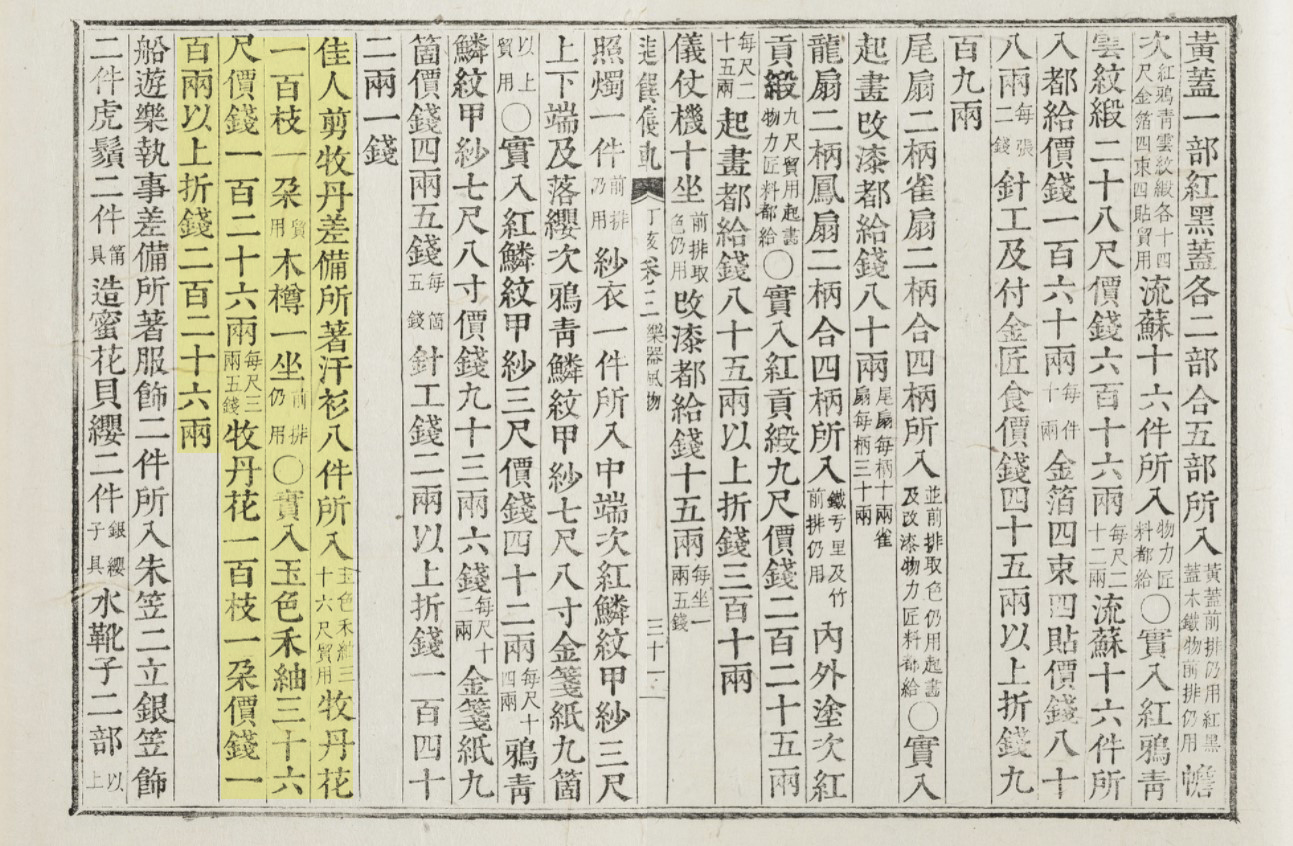 黃蓋一部紅黑蓋各二部合五部所入黃蓋前排仍用紅黑蓋木鐵物前排仍用幨
次紅鴉靑雲紋緞各十四尺金箔四束四貼貿用流蘇十六件所入物力匠料都給〇實入紅鴉靑
雲紋緞二十八尺價錢六百十六兩每尺二十二兩流蘇十六件所
入都給價錢一百六十兩每件十兩金箔四束四貼價錢八十
八兩每張二錢針工及付金匠食價錢四十五兩以上折錢九
百九兩
尾扇二柄雀扇二柄合四柄所入並前排取色仍用起畫及改漆物力匠料都給〇實入
起畫改漆都給錢八十兩尾扇每柄十兩雀扇每柄三十兩
龍扇二柄鳳扇二柄合四柄所入鐵亐里及竹前排仍用內外塗次紅
貢緞九尺貿用起畫物力匠料都給〇實入紅貢緞九尺價錢二百二十五兩
每尺二十五兩起畫都給錢八十五兩以上折錢三百十兩
儀仗機十坐前排取色仍用改漆都給錢十五兩每坐一兩五錢
進饌儀軌 丁亥 卷二 樂器風物 三十一
照燭一件前排仍用紗衣一件所入中端次紅鱗紋甲紗三尺
上下端及落纓次鴉靑鱗紋甲紗七尺八寸金箋紙九箇
以上貿用〇實入紅鱗紋甲紗三尺價錢四十二兩每尺十四兩鴉靑
鱗紋甲紗七尺八寸價錢九十三兩六錢每尺十二兩金箋紙九
箇價錢四兩五錢每箇五錢針工錢二兩以上折錢一百四十
二兩一錢
佳人剪牧丹差備所著汗衫八件所入玉色禾紬三十六尺貿用牧丹花
一百枝一朶貿用木樽一坐前排仍用〇實入玉色禾紬三十六
尺價錢一百二十六兩每尺三兩五錢牧丹花一百枝一朶價錢一
百兩以上折錢二百二十六兩
船遊樂執事差備所著服飾二件所入朱笠二立銀笠飾
二件虎鬚二件筩具造蜜花貝纓二件銀纓子具水靴子二部以上